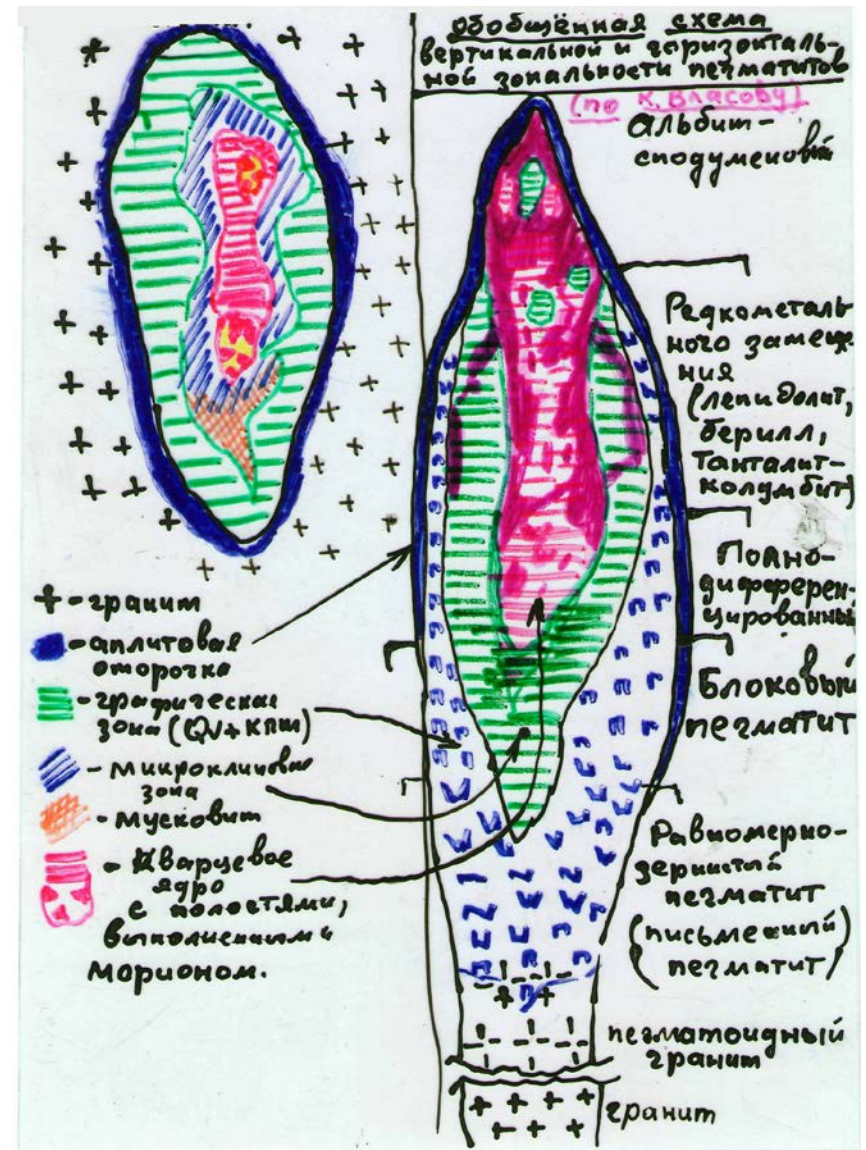 обобщённая схема
вертикальной и горизонталь-
ной зональности пегматитов
(по К. Власову)
альбит-
сподуменовый
Редкометаль
ного замеще
ния
(лепидолит,
берилл,
танталит-
колумбит)
Полно-
дифферен-
цированный
Блоковый
пегматит
Равномерно-
зернистый
пегматит
(письменный
пегматит)
пегматоидный
гранит
гранит
+ - гранит
- аплитовая
оторочка
- графическая
зона (QV+КПШ)
- микроклиновая
зона
- мусковит
- Кварцевое
ядро
с полостями,
выполненными
морионом.